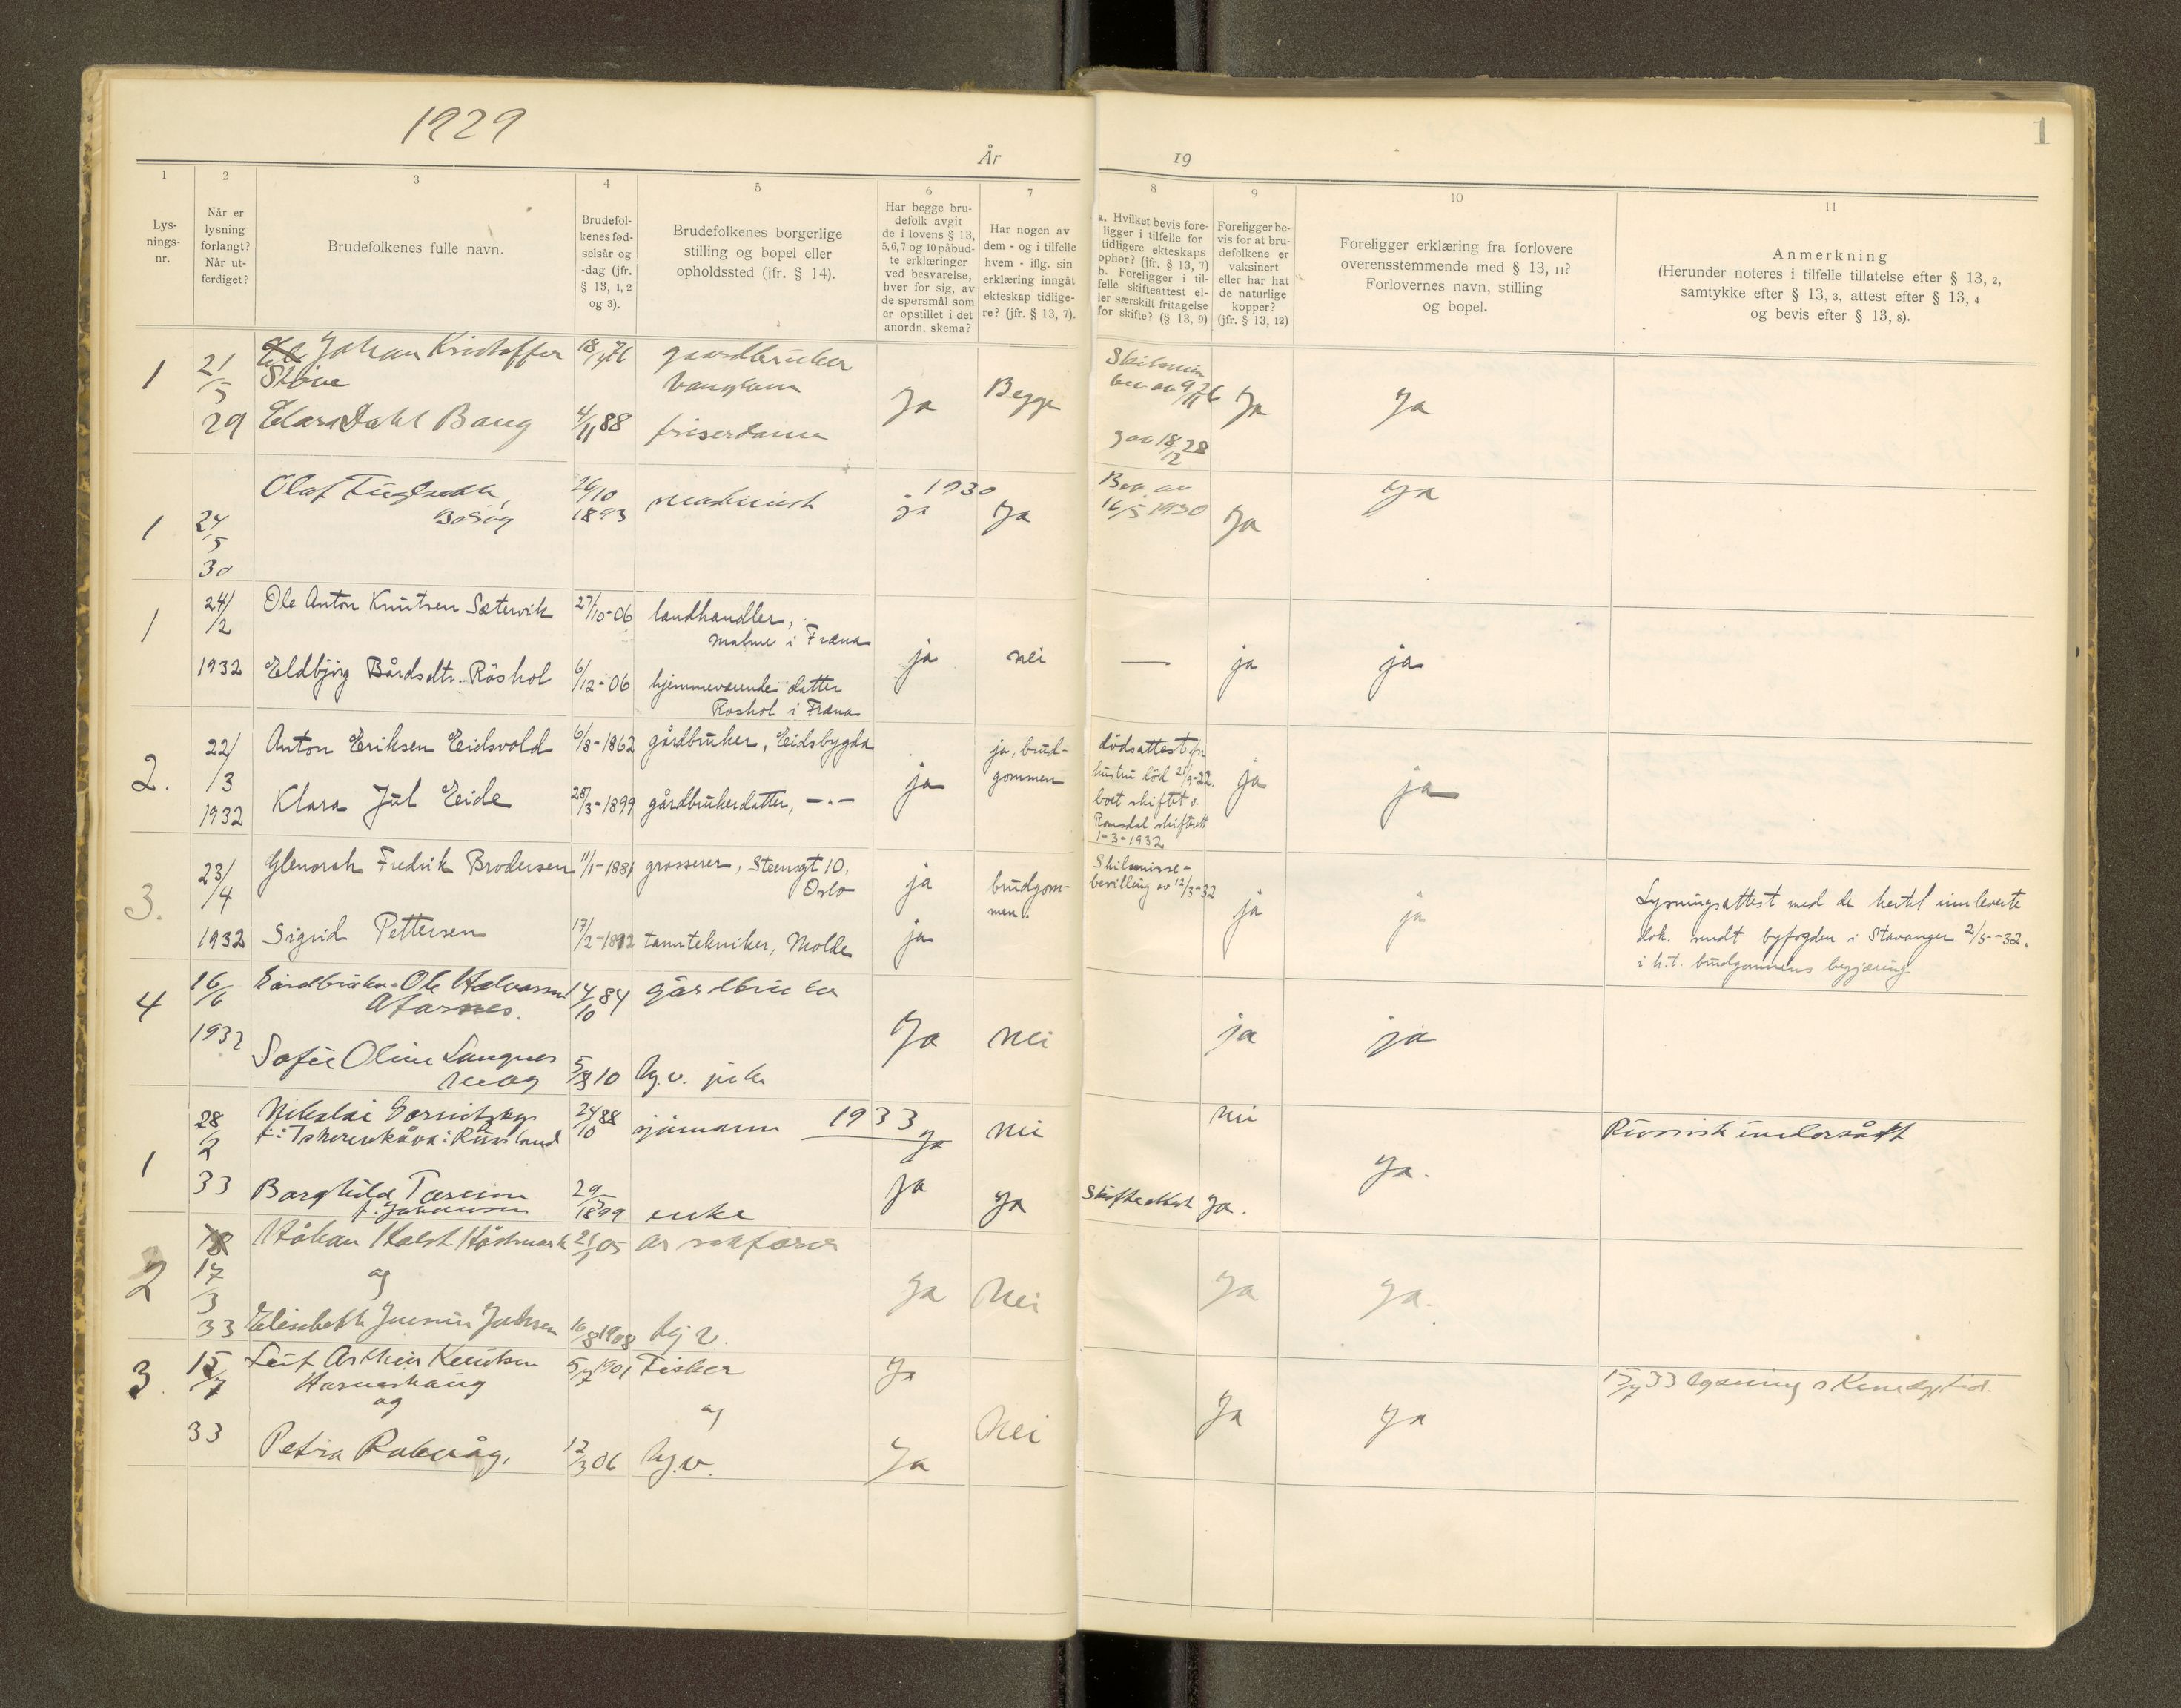 1929
År
19
1
1
Lys-
nings-
nr.
2
Når er
lysning
forlangt?
Når ut-
ferdiget?
3
Brudefolkenes fulle navn.
4
Brudefol-
kenes fød-
selsår og
-dag (jfr.
§ 13, 1, 2
og 3).
5
Brudefolkenes borgerlige
stilling og bopel eller
opholdssted (jfr. § 14).
6
Har begge bru-
defolk avgit
de i lovens § 13,
5, 6, 7 og 10 påbud-
te erklæringer
ved besvarelse,
hver for sig, av
de spørsmål som
er opstillet i det
anordn. skema?
7
Har nogen av
dem - og i tilfelle
hvem - iflg. sin
erklæring inngåt
ekteskap tidlige-
re? (jfr. § 13, 7).
8
a. Hvilket bevis fore-
ligger i tilfelle for
tidligere ekteskaps
ophør? (jfr. § 13, 7)
b. Foreligger i til-
felle skifteattest el-
ler særskilt fritagelse
for skifte? (§ 13, 9)
9
Foreligger be-
vis for at bru-
defolkene er
vaksinert
eller har hat
de naturlige
kopper?
(jfr. § 13, 12)
10
Foreligger erklæring fra forlovere
overensstemmende med § 13, 11?
Forlovernes navn, stilling
og bopel.
11
Anmerkning
(Herunder noteres i tilfelle tillatelse efter § 13, 2,
samtykke efter § 13, 3, attest efter § 13, 4
og bevis efter § 13, 8).
1
21/5
29
Johan Kristoffer
gaardbruker
Clara Dahl Baug
4/11 88
friserdame
Ja
Begge
av 9/11 26
18/12 28
Ja
Ja
1
24/5
30
Olaf
26/10
1893
maskinist
1930
ja
Ja
Bev. av
16/5 1930
Ja
Ja
1
24/2
1932
Ole Anton Knutsen Sætervik
27/10-06
landhandler,
Malme i Fræna
Eldbjörg Bårdsdtr. Röshol
6/12-06
hjemmeværende datter
Roshol i Fræna
ja
nei
—
ja
ja
2.
22/3
1932
Anton Eriksen Eidsvold
6/8-1862
gårdbruker, Eidsbygda
Klara Jul Eide
28/3-1899
gårdbrukerdatter, -"-
ja
ja, brud-
gommen
dödsattest for
hustru död 21/9-22.
boet skiftet v.
Romsdal skifterett
1-3-1932
ja
ja
3.
23/4
1932
Glenorah Fredrik Brodersen
11/1-1881
grosserer, Steensgt 10.
Oslo
Sigrid Pettersen
17/2-1892
tanntekniker, Molde
ja
ja
brudgom-
men.
Skilsmisse-
bevilling av 12/3-32
ja
ja
Lysningsattest med de hertil innleverte
dok. sendt byfogden i Stavanger 2/5-32.
i h.t. brudgommens begjæring
4
16/6
1932
Gårdbruker Ole Halvorsen
Afarnes.
14/10 84
gårdbruker
Sofie Oline Langnes
5/3 10
hj.v. pike
Ja
nei
ja
ja
1
28/2
33
Nikolai
24/10 88
sjömann
1933
ja
nei
nei
Borghild
f. Johansen
29/5
1899
enke
ja
Ja
Skifteattest
Ja.
Ja.
Russisk undersått
2
17/3
33
Håkon Holst
21/1 05
og
Elisabeth
16/8 1908
hj v.
Ja
Nei
Ja
Ja.
3.
15/7
33
Leif Arthur Knutsen
Harnashaug
og
5/7 1901
Fisker
og
Petra
12/3 06
hj.v.
Ja
Ja
Nei
Ja
Ja
15/7 33 lysning